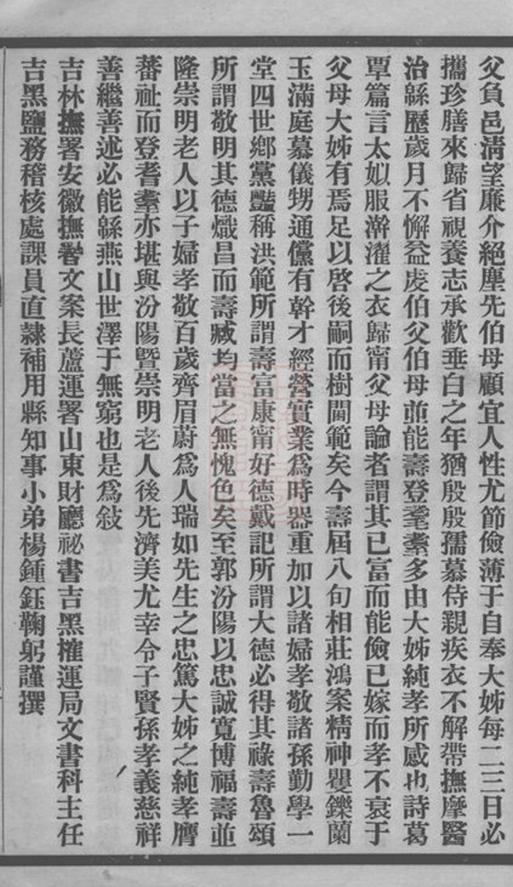 父負邑清望廉介絕塵先伯母顧宜人性尤節儉薄于自奉大姊每二三日必
攜珍膳來歸省視養志承歡垂白之年猶殷殷孺慕侍親疾衣不解帶撫摩醫
治縣歷歲月不懈益虔伯父伯母前能壽登耄耋多由大姊純孝所感也詩葛
覃篇言太姒服澣濯之衣歸甯父母論者謂其已富而能儉已嫁而孝不衰于
父母大姊有焉足以啓後嗣而樹閫範矣今壽屆八旬相莊鴻案精神矍鑠蘭
玉滿庭慕儀甥通儻有幹才經營實業爲時器重加以諸婦孝敬諸孫勤學一
堂四世鄉黨豔稱洪範所謂壽富康甯好德戴記所謂大德必得其祿壽魯頌
所謂敬明其德熾昌而壽臧均當之無愧色矣至郭汾陽以忠誠寬博福壽並
隆崇明老人以子婦孝敬百歲齊眉蔚爲人瑞如先生之忠篤大姊之純孝膺
蕃祉而登耆耋亦堪與汾陽暨崇明老人後先濟美尤幸令子賢孫孝義慈祥
善繼善述必能緜燕山世澤于無窮也是爲敍
吉林撫署安徽撫署文案長蘆運署山東財廳祕書吉黑榷運局文書科主任
吉黑鹽務稽核處課員直隸補用縣知事小弟楊鍾鈺鞠躬謹撰